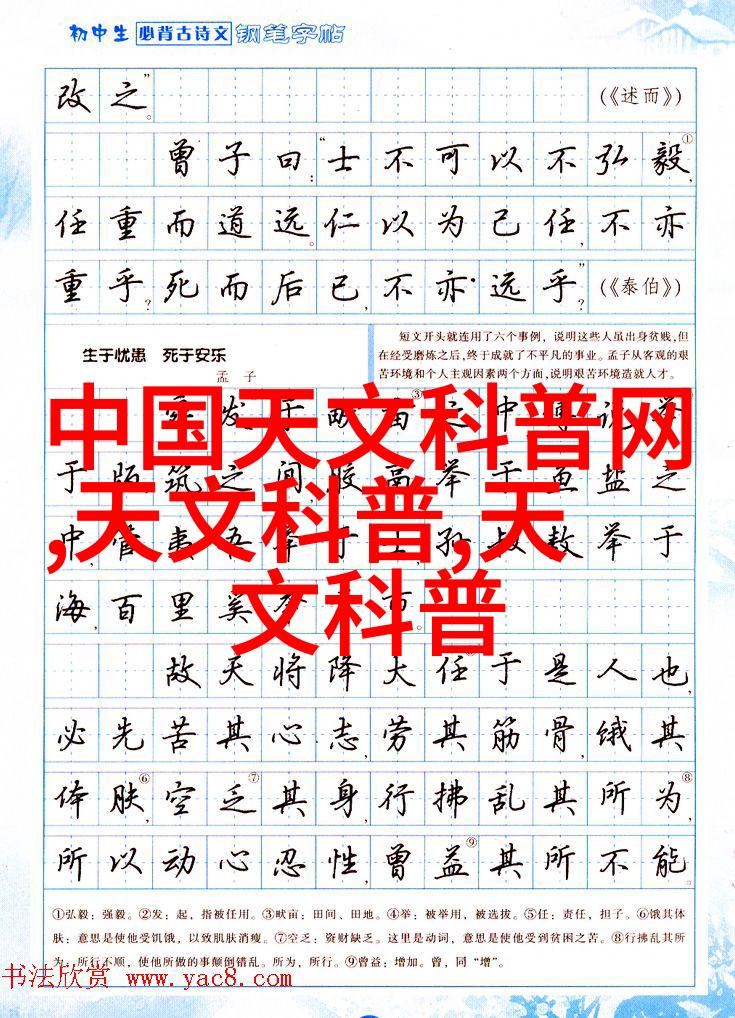 初中生 必背古诗文 钢笔字帖
改之”。 (《述而》)
曾子曰：“士不可以不弘毅①，
任重而道远。仁以为己任，不亦
重乎？死而后已，不亦远乎？” (《泰伯》)
生于忧患 死于安乐
孟 子
短文开头就连用了六个事例，说明这些人虽出身贫贱，但
在经受磨炼之后，终于成就了不平凡的事业。孟子从客观的艰
苦环境和个人主观因素两个方面，说明艰苦环境造就人才。
发于畎亩③之中，傅说举
于版筑之间，胶鬲举于鱼盐之
中，管夷吾举于士，孙叔敖举于
海，百里奚举于市。
中国天文科普网
,天文科普,天
文科普
故天将降大任于是人也，
必先苦其心志，劳其筋骨，饿其
体肤⑥，空乏⑦其身，行拂乱其所为⑧，
所以动心忍性，曾益⑨其所不能。
①弘毅：强毅。②发：起，指被任用。③畎亩：田间、田地。④举：被举用，被选拔。⑤任：责任，担子。⑥饿其体
肤：意思是使他受饥饿，以致肌肤消瘦。⑦空乏：资财缺乏。这里是动词，意思是使他受到贫困之苦。⑧行拂乱其所
为：所行不顺，使他所做的事颠倒错乱。所为，所行。⑨曾益：增加。曾，同“增”。
书法欣赏 www.yac8.com